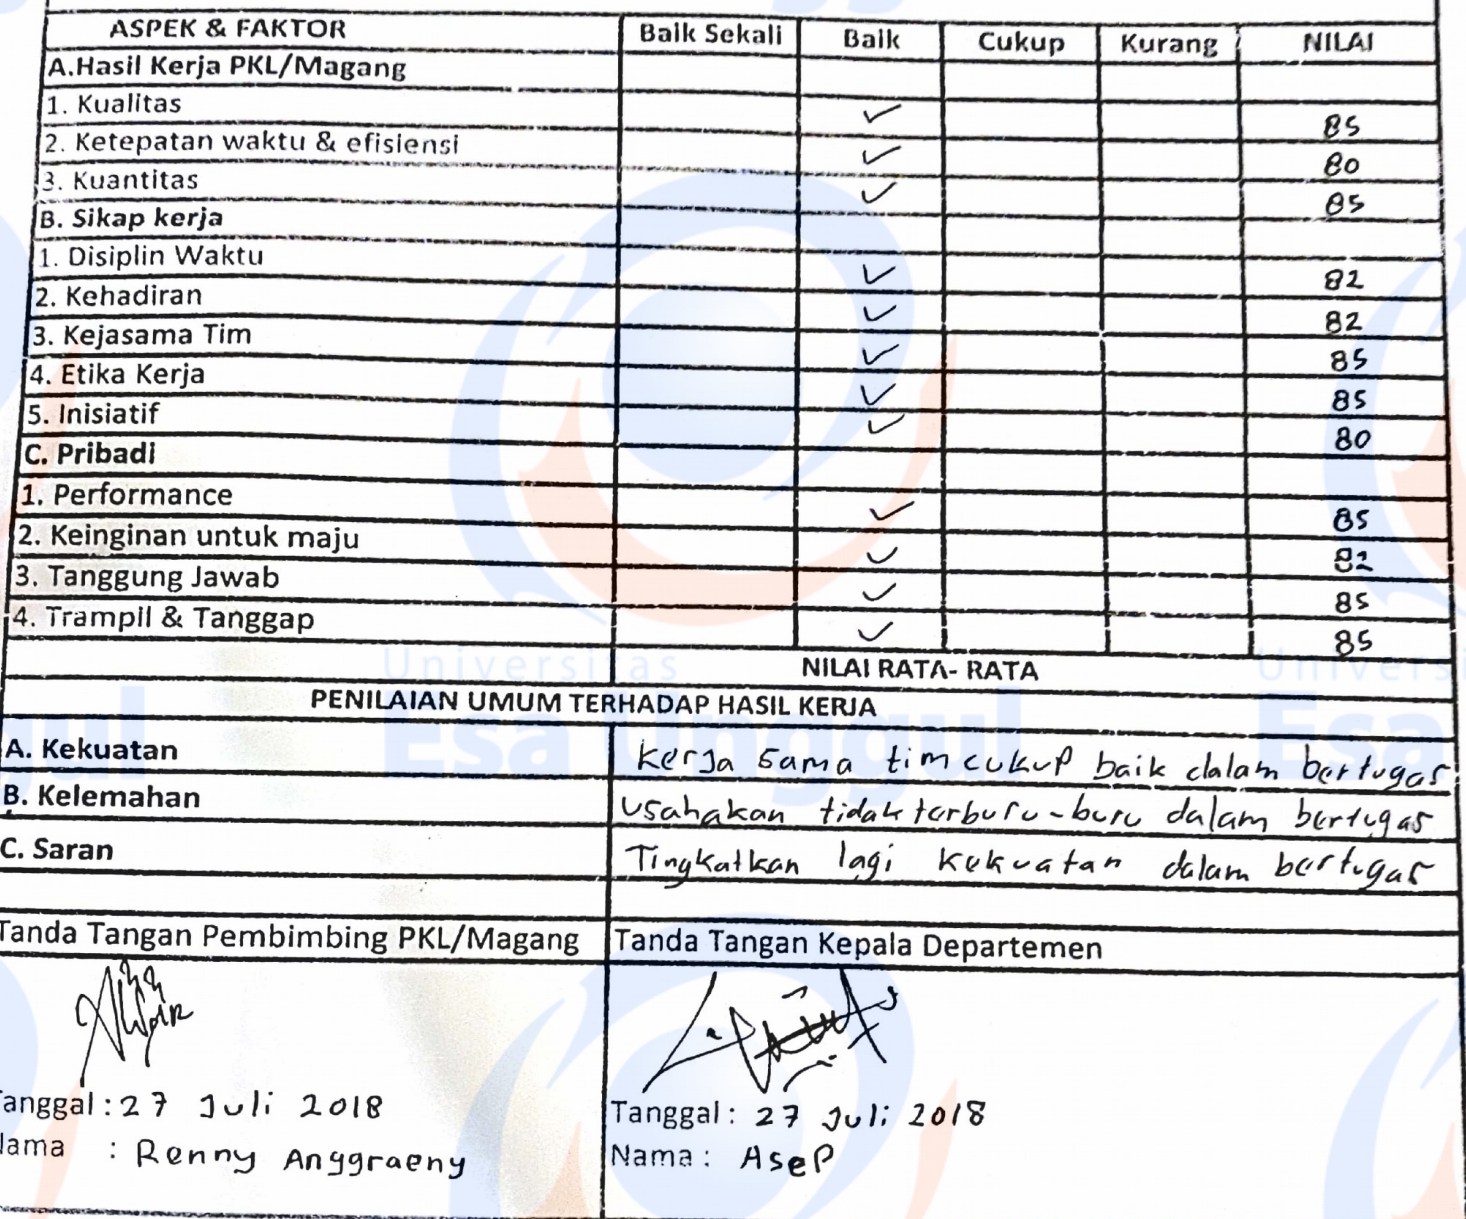 ASPEK & FAKTOR Baik Sekali Baik Cukup Kurang NILAI
A.Hasil Kerja PKL/Magang
1. Kualitas ✓ 85
2. Ketepatan waktu & efisiensi ✓ 80
3. Kuantitas ✓ 85
B. Sikap kerja
1. Disiplin Waktu ✓ 82
2. Kehadiran ✓ 82
3. Kejasama Tim ✓ 85
4. Etika Kerja ✓ 85
5. Inisiatif ✓ 80
C. Pribadi
1. Performance ✓ 85
2. Keinginan untuk maju ✓ 82
3. Tanggung Jawab ✓ 85
4. Trampil & Tanggap ✓ 85
NILAI RATA- RATA
PENILAIAN UMUM TERHADAP HASIL KERJA
A. Kekuatan Kerja sama tim cukup baik dalam bertugas
B. Kelemahan Usahakan tidak terburu-buru dalam bertugas
C. Saran Tingkatkan lagi kekuatan dalam bertugas
Tanda Tangan Pembimbing PKL/Magang Tanda Tangan Kepala Departemen
Tanggal : 27 Juli 2018 Tanggal : 27 Juli 2018
Nama : Renny Anggraeny Nama : Asep
Universitas
Esa Unggul
Univers
Esa
gul